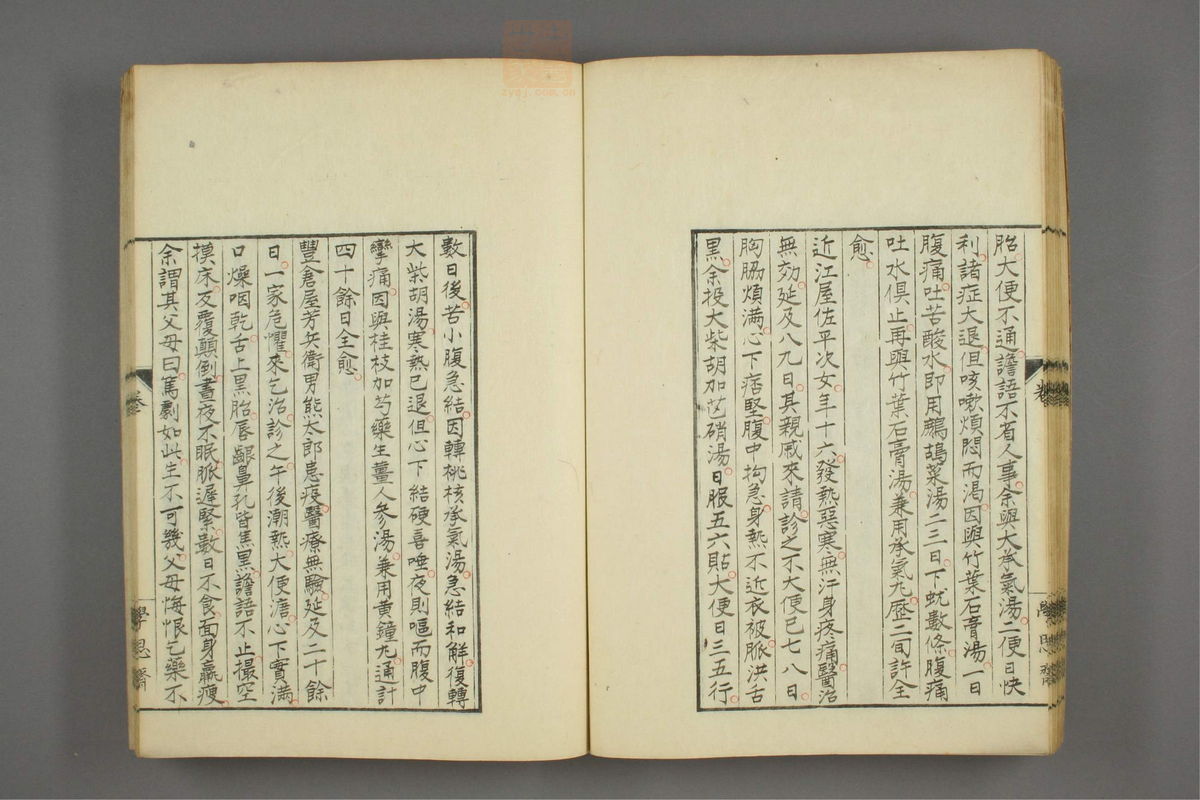 胎大便不通譫語不省人事余與大承氣湯二便日快
利諸症大退但咳嗽煩悶而渴因與竹葉石膏湯一日
腹痛吐苦酸水即用鷓鴣菜湯二三日下蚘數條腹痛
吐水俱止再與竹葉石膏湯兼用承氣丸歷二旬許全
愈
近江屋佐平次女年十六發熱惡寒無汗身疼痛醫治
無効延及八九日其親戚來請診之不大便已七八日
胸脇煩滿心下痞堅腹中拘急身熱不近衣被脈洪舌
黑余投大柴胡加芒硝湯日服五六貼大便日三五行
數日後苦小腹急結因轉桃核承氣湯急結和解復轉
大柴胡湯寒熱已退但心下結硬喜唾夜則嘔而腹中
攣痛因與桂枝加芍藥生薑人參湯兼用黃鐘丸通計
四十餘日全愈
豐倉屋芳兵衛男熊太郎患疫醫療無驗延及二十餘
日一家危懼來乞治診之午後潮熱大便溏心下實滿
口燥咽乾舌上黑胎唇齦鼻孔皆焦黑譫語不止撮空
摸床反覆顛倒晝夜不眠脈遲緊數日不食面身羸瘦
余謂其父母曰篤劇如此生不可幾父母悔恨乞藥不
學思齋
zyqj.com.cn